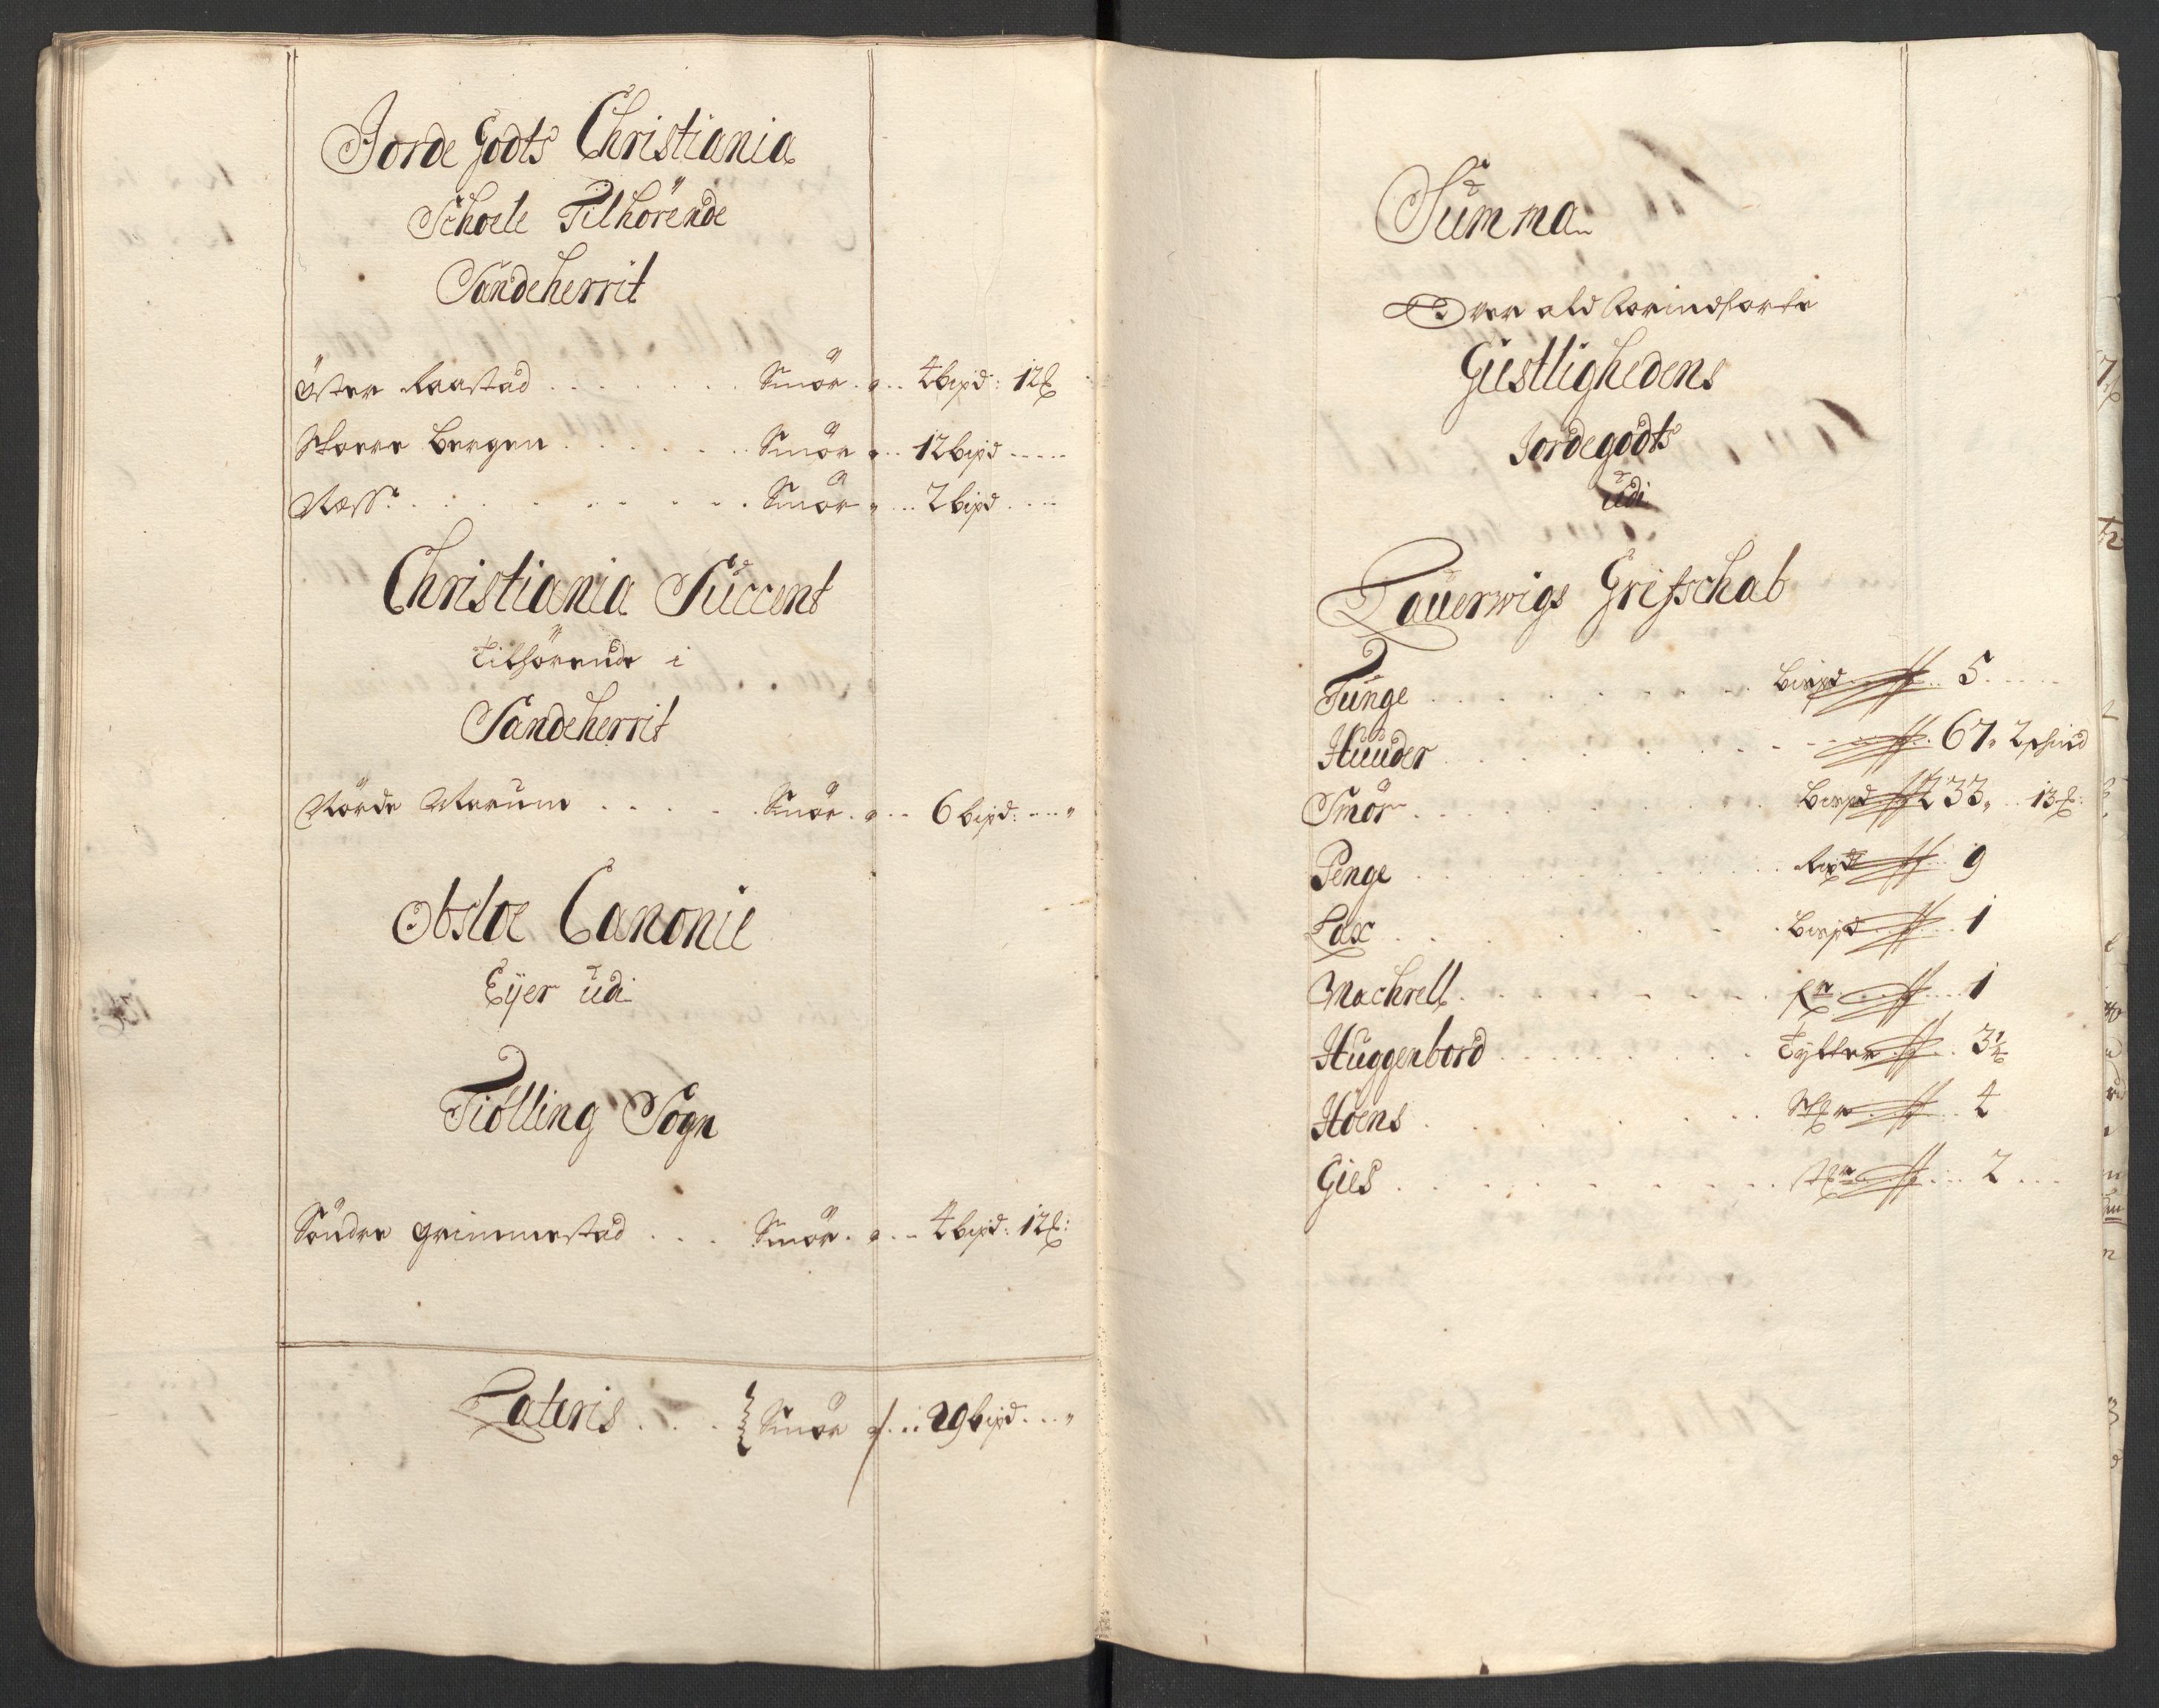 Jorde Godts Christiania
Schoele Tilhörende
Sandeherrit
Öster Raastad . . . . . . . Smör . " .. 4 bispd: 12 ℔
Store Bergen . . . . . . . Smör " .. 12 bispd .....
Næss . . . . . . . . . Smör " ... 2 bispd ....
Christiania Succent
Tilhörende i
Sandeherrit
Nörde Marum . . . . . Smör . " .. 6 bispd: ... "
Obsloe Canonie
Eÿer udi
Tiölling Sogn
Söndre Grimmestad . . . Smör . " .. 4 bispd: 12 ℔:
Lateris . . . Smör .. 29 bispd ... "
Summa
Over ald forindförte
Giestlighedens
Jordegodts
udi
Lauerwigs Grefschab
Tunge . . . . . . . . . bispd .. 5 .....
Huuder . . . . . . . . . 67 " 2 skind
Smör . . . . . . . . . bispd 233 " .. 13 ℔:
Penge . . . . . . . . . Rixd .. 9
Lax . . . . . . . . . bispd .. 1
Machrell . . . . . . . . . 1
Huggenbord . . . . . . . . Tylter .. 3½
Höens . . . . . . . . . Stkr .. 4
Gies . . . . . . . . . stkr ... 2 ...